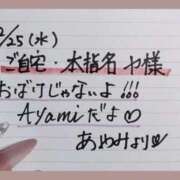 2/25(水)
ご自宅・本指名 や様
おばけじゃないよ!!!
Ayamiだよ♡
あやみより♡